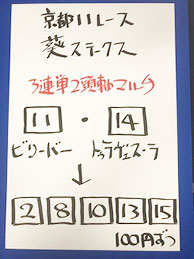 京都11レース
葵ステークス
3連単2頭軸マルチ
11・14
ビリーバー トゥラヴェスーラ
↓
2 8 10 13 15
100円ずつ